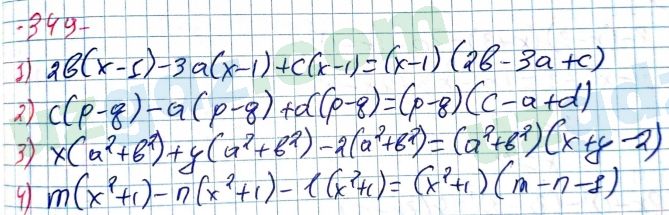 -349-
1) 2в(x-1)-3a(x-1)+c(x-1)=(x-1)(2в-3a+c)
2) c(p-q)-a(p-q)+d(p-q)=(p-q)(c-a+d)
3) x(a²+в²)+y(a²+в²)-2(a²+в²)=(a²+в²)(x+y-2)
4) m(x²+1)-n(x²+1)-l(x²+1)=(x²+1)(m-n-l)